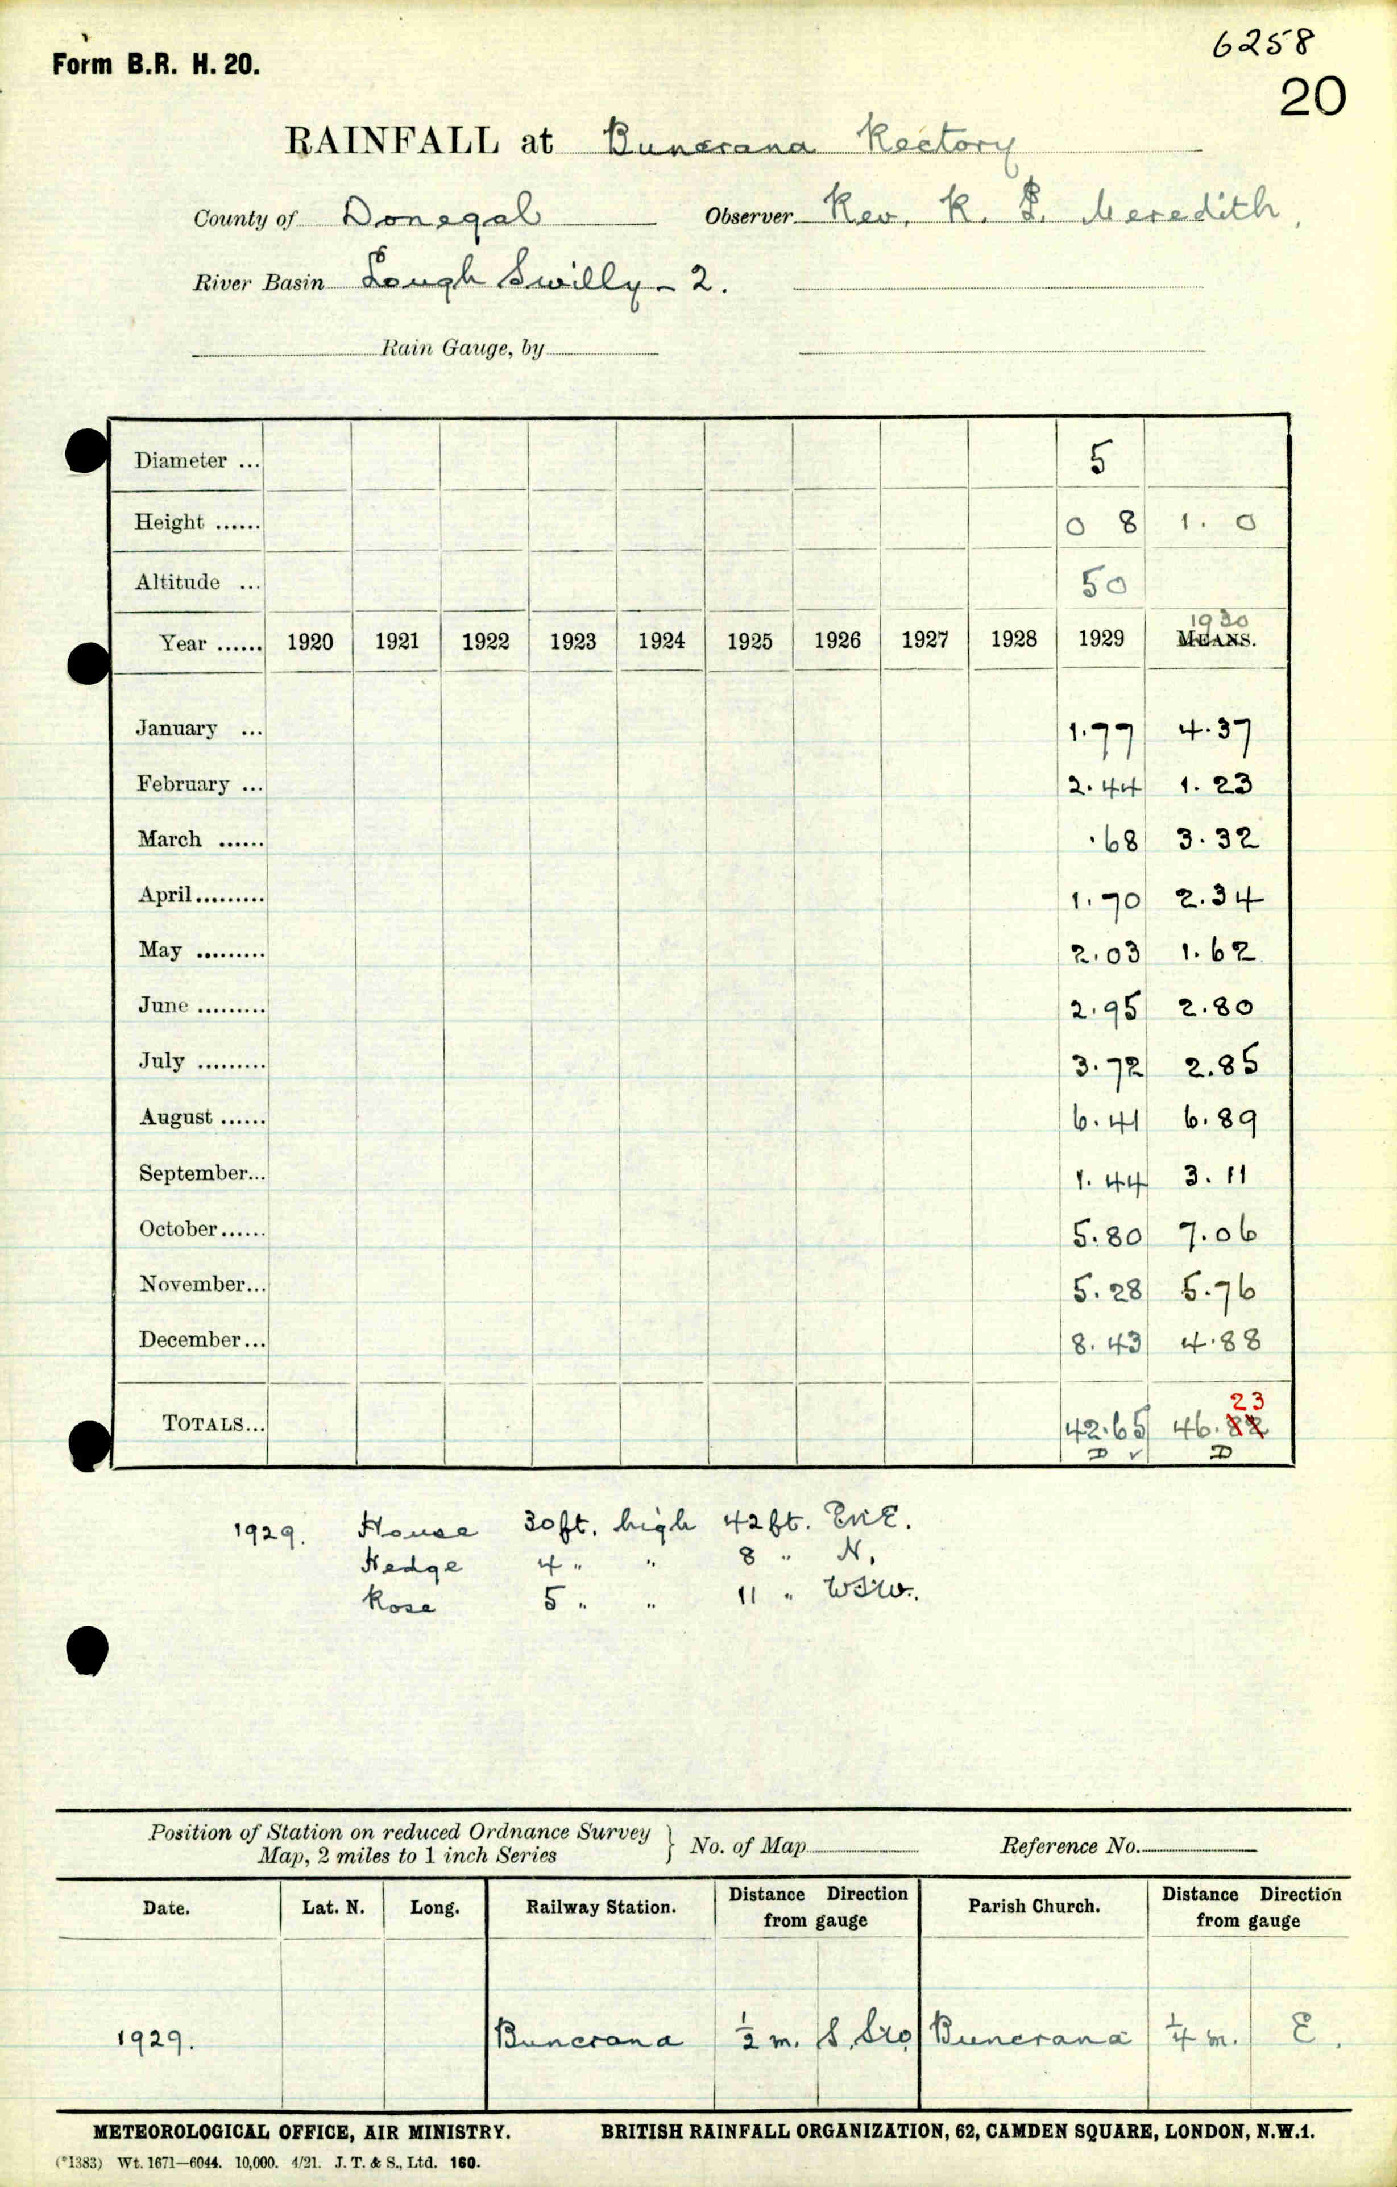 Form B.R. H. 20.
6258
20
RAINFALL at Buncrana Rectory
County of Donegal Observer Rev. R. Meredith.
River Basin Lough Swilly - 2.
Rain Gauge, by
Diameter ... 5
Height ...... 0 8 1. 0
Altitude ... 50
1930
Year ...... 1920 1921 1922 1923 1924 1925 1926 1927 1928 1929 MEANS.
January ... 1.77 4.37
February ... 2.44 1.23
March ...... .68 3.32
April......... 1.70 2.34
May ......... 2.03 1.62
June ......... 2.95 2.80
July ......... 3.72 2.85
August ...... 6.41 6.89
September... 1.44 3.11
October...... 5.80 7.06
November... 5.28 5.76
December... 8.43 4.88
23
TOTALS... 42.65 46.82
D ✓ D
1929. House 30ft. high 42ft. ENE.
Hedge 4 " " 8 " N.
Rose 5 " " 11 " WSW.
Position of Station on reduced Ordnance Survey
Map, 2 miles to 1 inch Series } No. of Map Reference No.
Date. Lat. N. Long. Railway Station. Distance Direction from gauge Parish Church. Distance Direction from gauge
1929. Buncrana 1/2 m. S Buncrana 1/4 m. E.
METEOROLOGICAL OFFICE, AIR MINISTRY. BRITISH RAINFALL ORGANIZATION, 62, CAMDEN SQUARE, LONDON, N.W.1.
(*1383) Wt. 1671—6044. 10,000. 4/21. J. T. & S., Ltd. 160.